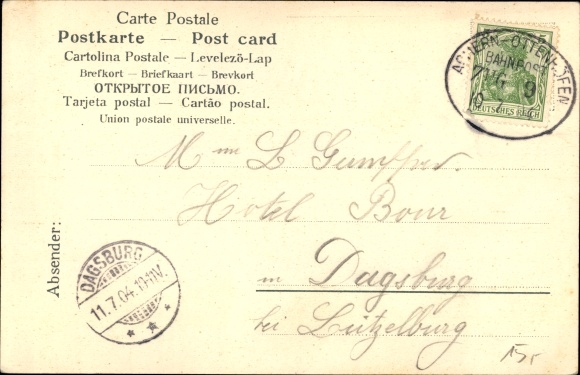 Carte Postale
Postkarte — Post card
Cartolina Postale — Levelező-Lap
Brefkort — Briefkaart — Brevkort
ОТКРЫТОЕ ПИСЬМО.
Tarjeta postal — Cartão postal.
Union postale universelle.
5
DEUTSCHES REICH
ACHERN-OTTENHÖFEN
BAHNPOST
Mme L
Hotel Bour
in Dagsburg
bei Lützelburg
Absender:
DAGSBURG
11.7.04.10-11V.